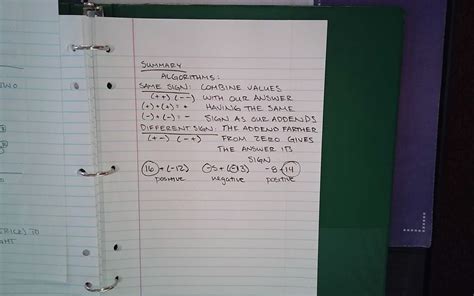 TWO
SUMMARY
ALGORITHMS:
SAME SIGN: COMBINE VALUES
(++) (--) WITH OUR ANSWER
(+)+(+)=+ HAVING THE SAME
(-)+(-)=- SIGN AS OUR ADDENDS
DIFFERENT SIGN: THE ADDEND FARTHER
(+-) (-+) FROM ZERO GIVES
THE ANSWER ITS
SIGN
16+(-12) -5+(-13) -8+14
positive negative positive
TO